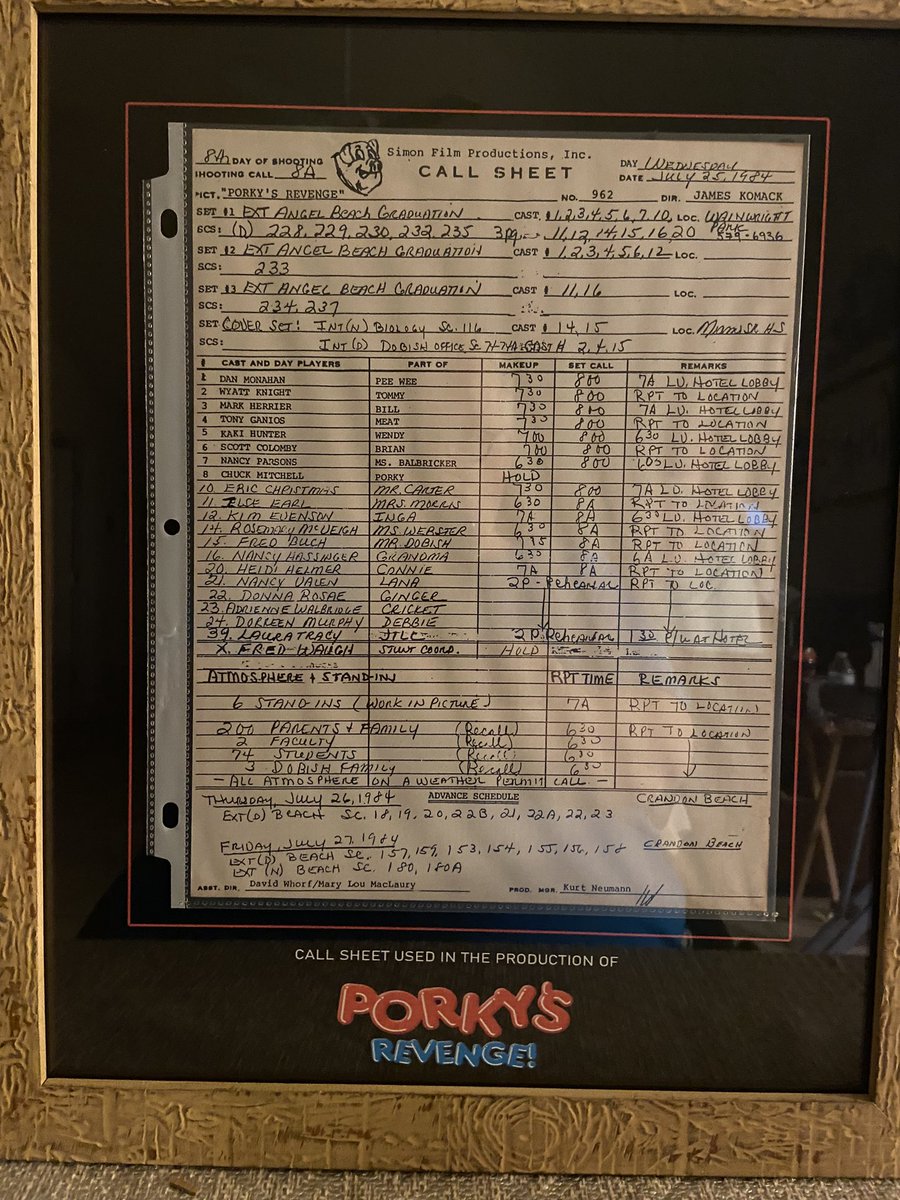 Simon Film Productions, Inc.
8th DAY OF SHOOTING CALL SHEET DAY WEDNESDAY
SHOOTING CALL 8A DATE JULY 25, 1984
PICT. "PORKY'S REVENGE" NO. 962 DIR. JAMES KOMACK
SET #1 EXT ANGEL BEACH GRADUATION CAST # 1,2,3,4,5,6,7,10, LOC. WAINWRIGHT PARK
SCS: (D) 228, 229, 230, 232, 235 3pg 11,12,14,15,16,20 579-6936
SET #2 EXT ANGEL BEACH GRADUATION CAST # 1,2,3,4,5,6,12 LOC.
SCS: 233
SET #3 EXT ANGEL BEACH GRADUATION CAST # 11,16 LOC.
SCS: 234, 237
SET COVER SET: INT(N) BIOLOGY SC. 116 CAST # 14,15 LOC.
SCS: INT (D) DOBISH OFFICE SC 74-74A CAST # 2,4,15
# CAST AND DAY PLAYERS PART OF MAKEUP SET CALL REMARKS
1 DAN MONAHAN PEE WEE 730 800 7A LV. HOTEL LOBBY
2 WYATT KNIGHT TOMMY 730 800 RPT TO LOCATION
3 MARK HERRIER BILL 730 800 7A LV. HOTEL LOBBY
4 TONY GANIOS MEAT 730 800 RPT TO LOCATION
5 KAKI HUNTER WENDY 700 800 630 LV. HOTEL LOBBY
6 SCOTT COLOMBY BRIAN 700 800 RPT TO LOCATION
7 NANCY PARSONS MS. BALBRICKER 630 800 LV. HOTEL LOBBY
8 CHUCK MITCHELL PORKY HOLD
10. ERIC CHRISTMAS MR. CARTER 730 800 7A LV. HOTEL LOBBY
11. ILSE EARL MRS. MORRIS 630 8A RPT TO LOCATION
12. KIM EVENSON INGA 7A 8A 630 LV. HOTEL LOBBY
14. ROSEMARY McVEIGH MS. WEBSTER 630 8A RPT TO LOCATION
15. FRED BUCH MR. DOBISH 8A RPT TO LOCATION
16. NANCY HASSINGER GRANDMA 630 8A 6A LV. HOTEL LOBBY
20. HEIDI HELMER CONNIE 7A 8A RPT TO LOCATION
21. NANCY VALEN LANA 2P - Rehearsal RPT TO LOC
22. DONNA ROSAE GINGER
23. ADRIENNE WALBRIDGE CRICKET
24. DOREEN MURPHY DEBBIE
39. LAURA TRACY 2P Rehearsal 130 P/U AT HOTEL
X. FRED WAUGH STUNT COORD. HOLD
ATMOSPHERE & STAND-IN RPT TIME REMARKS
6 STAND-INS (WORK IN PICTURE) 7A RPT TO LOCATION
200 PARENTS & FAMILY (Recall) 630 RPT TO LOCATION
2 FACULTY (Recall) 630
74 STUDENTS (Recall) 630
3 DOBISH FAMILY (Recall) 630
- ALL ATMOSPHERE ON A WEATHER PERMIT CALL -
THURSDAY, JULY 26, 1984 ADVANCE SCHEDULE CRANDON BEACH
EXT(D) BEACH SC. 18, 19, 20, 22B, 21, 22A, 22, 23
FRIDAY JULY 27, 1984 CRANDON BEACH
EXT (D) BEACH SC. 157, 159, 153, 154, 155, 156, 158
EXT (N) BEACH SC. 180, 180A
ASST. DIR. David Whorf/Mary Lou MacLaury PROD. MGR. Kurt Neumann
CALL SHEET USED IN THE PRODUCTION OF
PORKY'S
REVENGE!